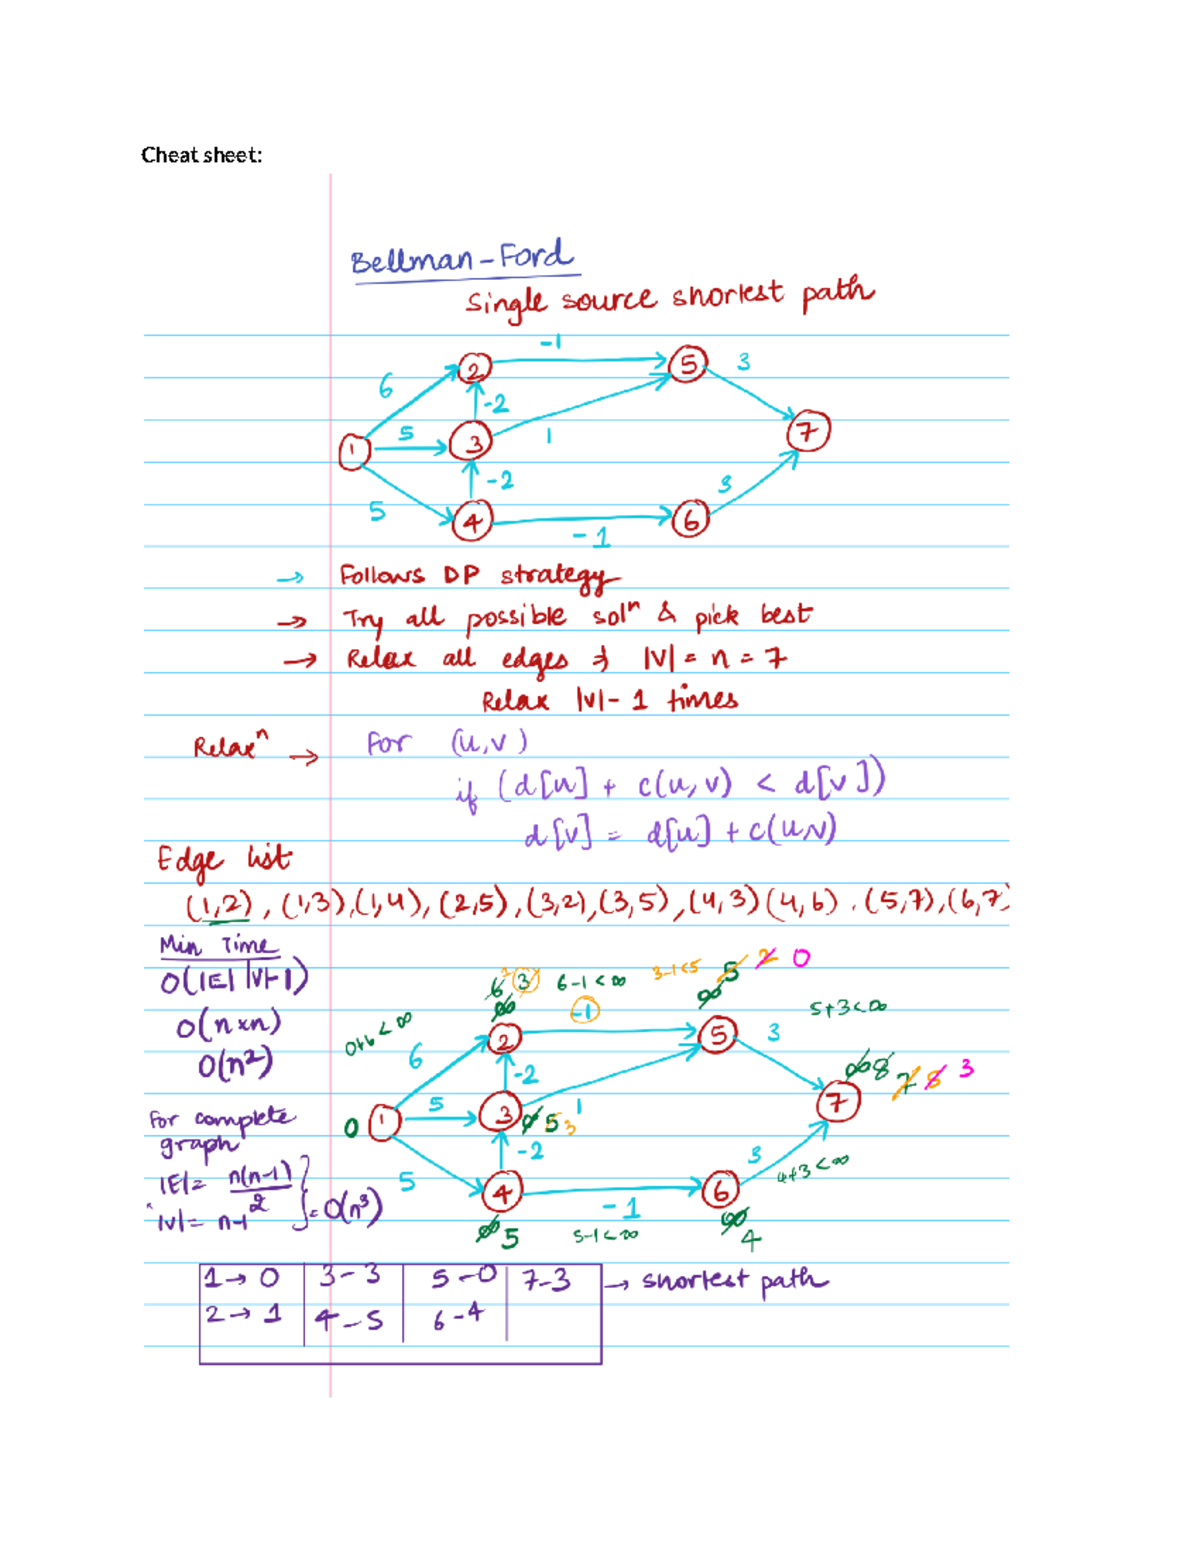 Cheat sheet:
Bellman-Ford
Single source shortest path
-1
2
5
3
6
-2
5
1
7
1
3
-2
3
5
4
6
-1
→ Follows DP strategy
→ Try all possible solⁿ & pick best
→ Relax all edges → |V| = n = 7
Relax |V|-1 times
Relaxⁿ → For (u,v)
if (d[u] + c(u,v) < d[v])
d[v] = d[u] + c(u,v)
Edge list
(1,2), (1,3), (1,4), (2,5), (3,2), (3,5), (4,3) (4,6), (5,7), (6,7)
Min Time
O(|E| |V|-1)
O(n×n)
O(n²)
For complete
graph
|E| = n(n-1)/2
|V| = n-1
} = O(n³)
6 3 6-1<∞ 3-1<5 5 2 0
∞ -1 ∞ 5+3<∞
0+6<∞
2
5
3
6
-2
∞ 8 7 5 3
5
1
7
0 1
3 ∞ 5 3
-2
3
4+3<∞
5
4
6
-1
∞ 5 5-1<∞ ∞ 4
1→0 3-3 5-0 7-3 → shortest path
2→1 4-5 6-4